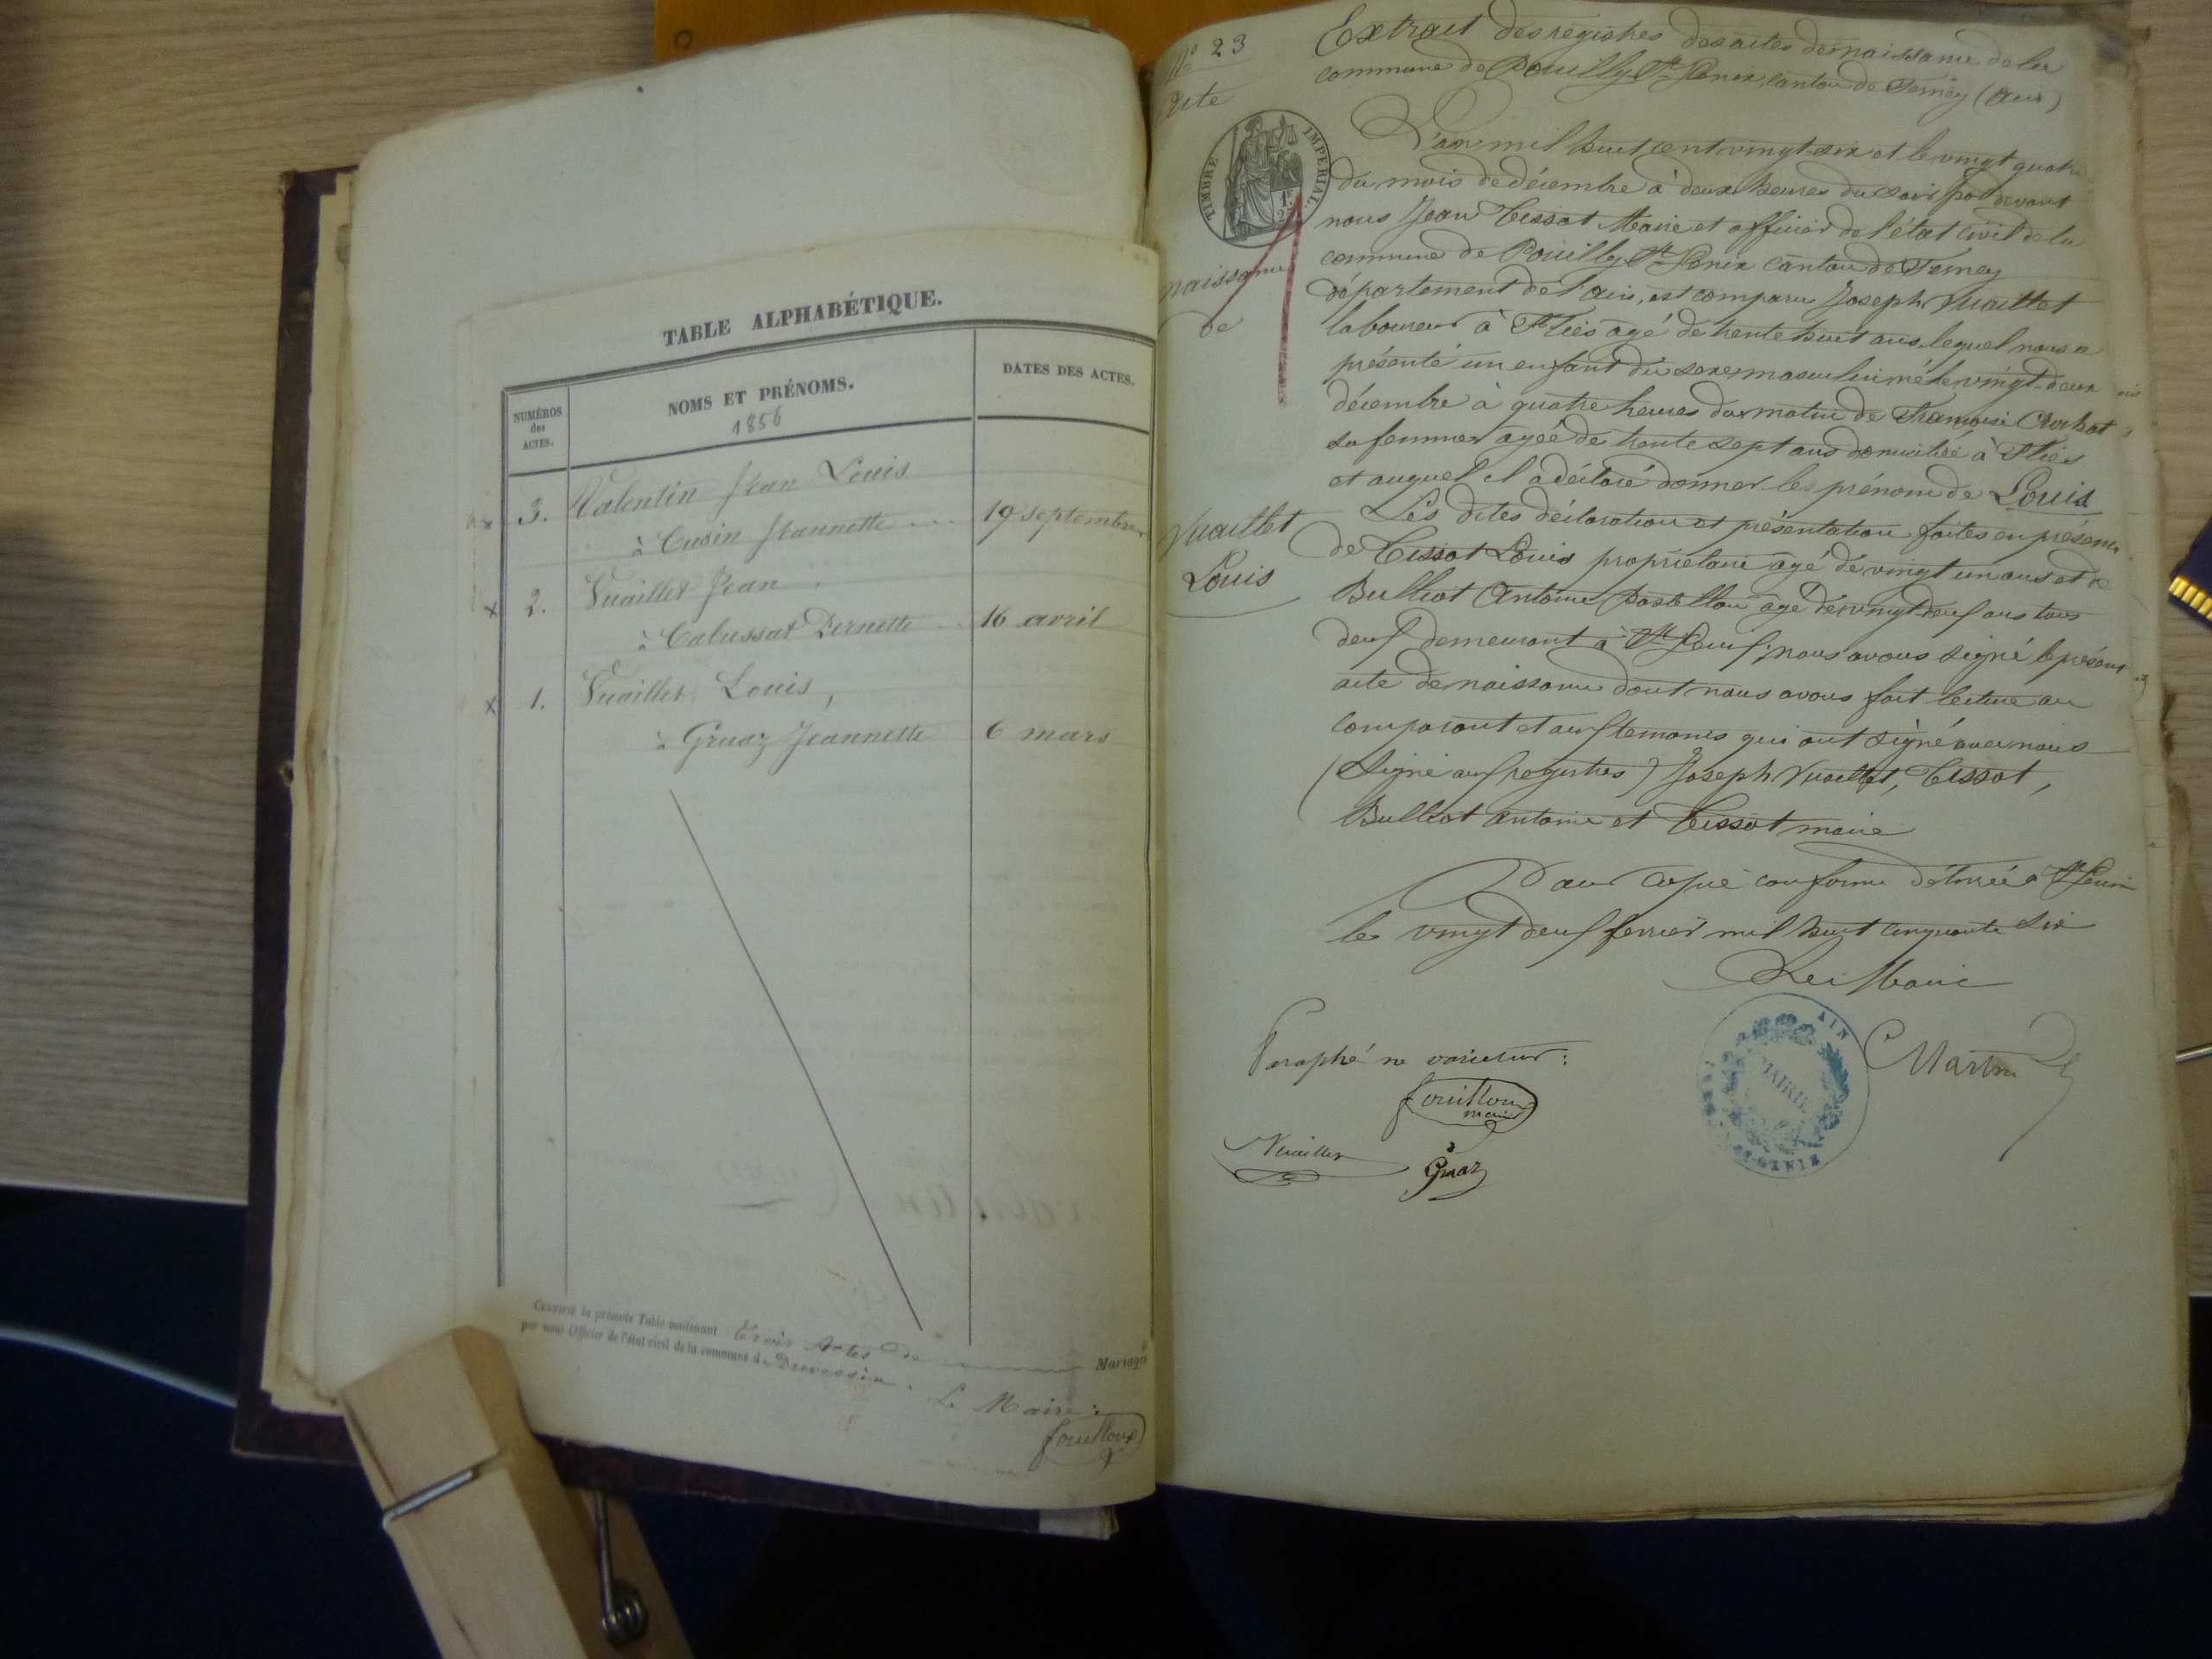 TABLE ALPHABÉTIQUE.
NUMÉROS des ACTES.
NOMS ET PRÉNOMS.
1856
DATES DES ACTES.
3. Valentin Jean Louis
à Cusin Jeannette ... 19 septembre
2. Vuaillet Jean
à Calussat Pernette .. 16 avril
1. Vuaillet Louis,
à Gruaz Jeannette 6 mars
Certifié la présente Table contenant Trois Actes de Mariages
par nous Officier de l'état civil de la commune d
Le Maire :
fouilloux
N° 23
Acte
naissance
de
Vuaillet
Louis
TIMBRE IMPERIAL
Extrait des registres des actes de naissance de la
commune de Pouilly St Genix, canton de Ferney (Ain)
L'an mil huit cent vingt-six et le vingt quatre
du mois de décembre à deux heures du soir par devant
nous Jean Tissot Maire et officier de l'état civil de la
commune de Pouilly St Genix canton de Ferney
département de l'ain, est comparu Joseph Vuaillet
laboureur à Flies agé de trente huit ans, lequel nous a
présenté un enfant du sexe masculin né le vingt-deux
décembre à quatre heures du matin de Françoise
sa femme agée de trente sept ans domiciliée à Flies
et auquel il a déclaré donner le prénom de Louis
Les dites déclaration et présentation faites en présence
de Tissot Louis propriétaire agé de vingt un ans et de
Bulliot Antoine Postillon agé de vingt deux ans tous
deux demeurant à St Genix; nous avons signé le présent
acte de naissance dont nous avons fait lecture au
comparant et aux temoins qui ont signé avec nous
(Signé aux registres) Joseph Vuaillet, Tissot,
Bulliot antoine et Tissot maire
Pour copie conforme délivrée à St Genix
le vingt deux fevrier mil huit cinquante six
Le Maire
Martin
AIN
MAIRIE
Paraphé ne varietur :
fouilloux
maire
Vuaillet
Gruaz